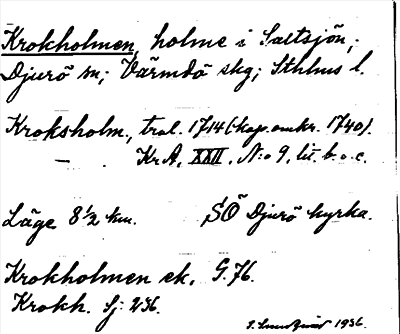 Krokholmen, holme i Saltsjön,
Djurö sn; Värmdö skg; Sthlms l.
Kroksholm, tral. 1714 (kop. omkr. 1740).
— . KrA, XXII, N:o 9, lit. b. o. c.
Läge 8 1/2 km. SÖ Djurö kyrka.
Krokholmen ek. G. 76.
Krokh. Sj: 236.
1936.